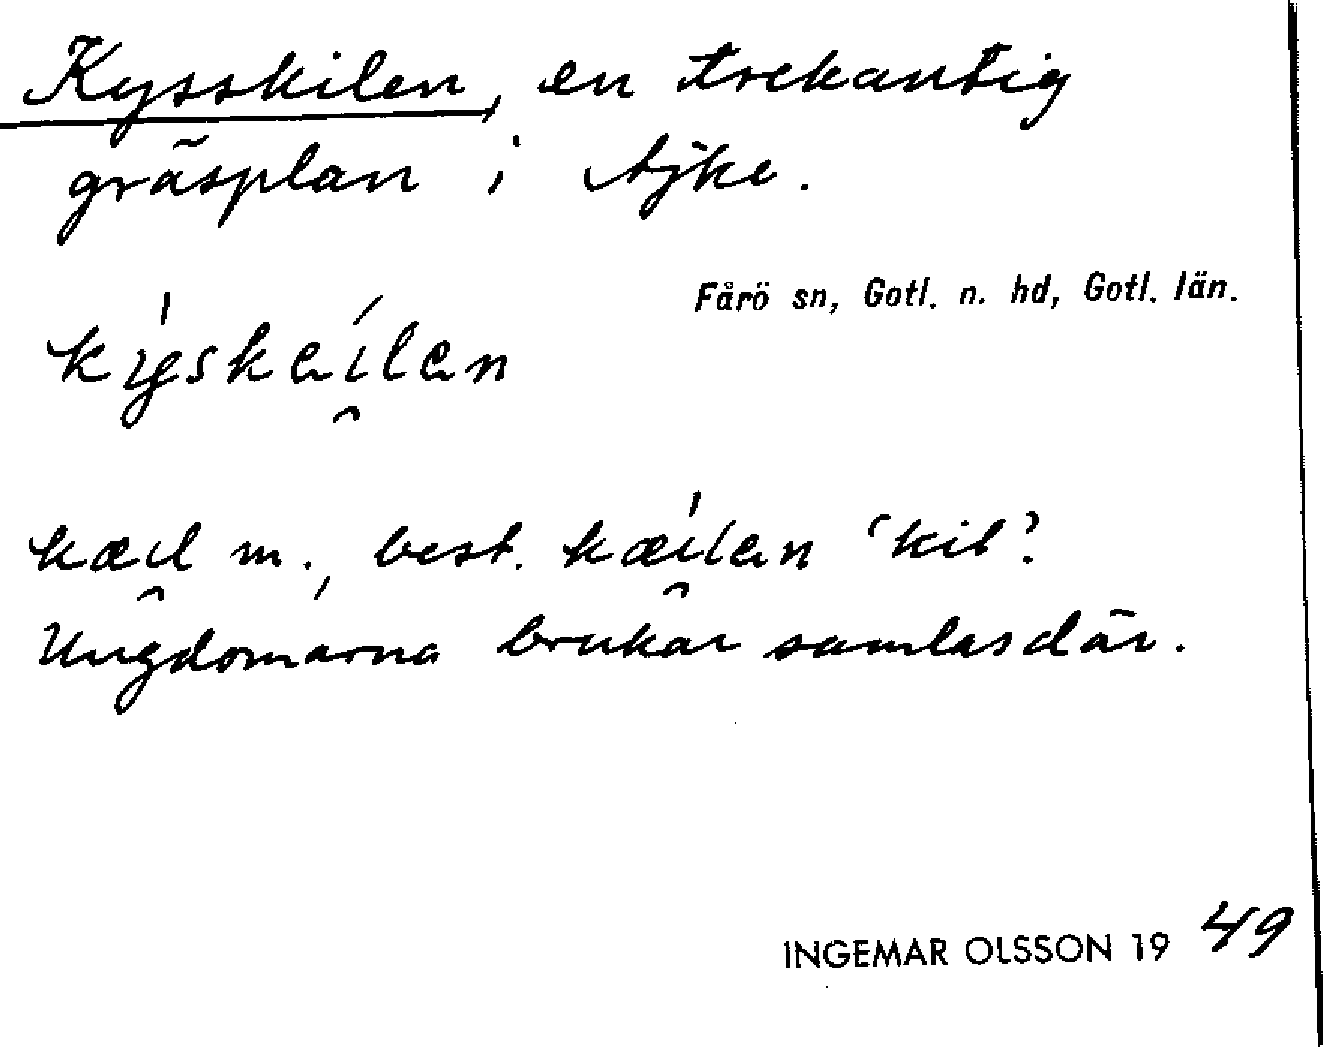 Kysskilen, en trekantig
gräsplan i Ajke.
Fårö sn, Gotl. n. hd, Gotl. län.
kæi̯l m., best. kæ̍i̯lan ‘kil’.
Ungdomarna brukar samlas där.
INGEMAR OLSSON 19 49